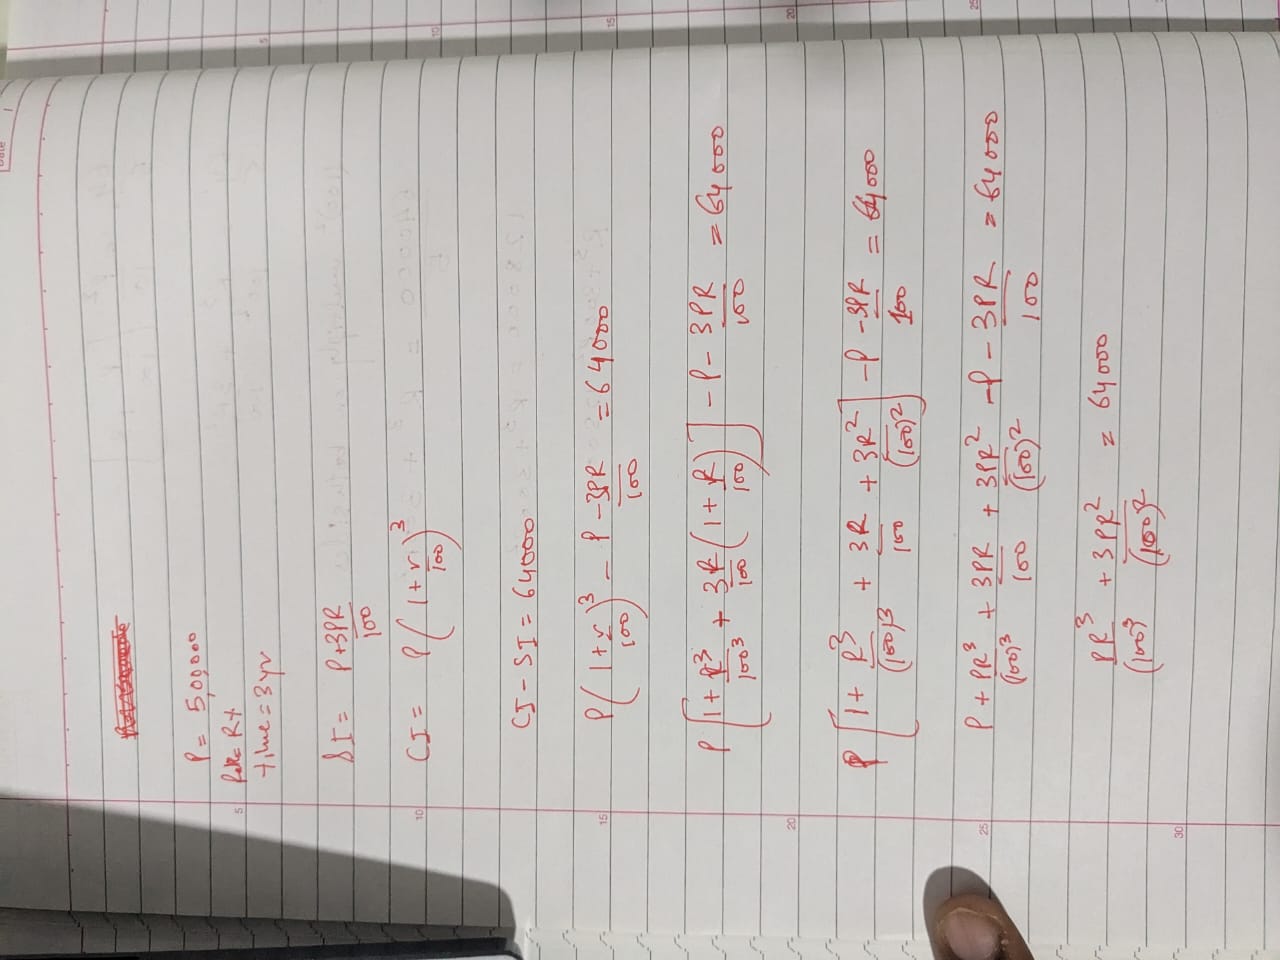 Date
P = 5,00,000
Rate = R%
time = 3yr
SI = P+3PR/100
CI = P(1+r/100)^3
CI - SI = 64000
P(1+r/100)^3 - P - 3PR/100 = 64000
P[1+R^3/100^3 + 3R/100(1+R/100)] - P - 3PR/100 = 64000
P[1+ R^3/(100)^3 + 3R/100 + 3R^2/(100)^2] - P - 3PR/100 = 64000
P + PR^3/(100)^3 + 3PR/100 + 3PR^2/(100)^2 - P - 3PR/100 = 64000
PR^3/(100)^3 + 3PR^2/(100)^2 = 64000
5
10
15
20
25
30
5
10
15
20
25